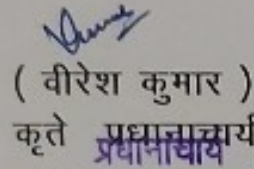 ( वीरेश कुमार )
कृते प्रधानाचार्य
प्रधानाचार्य